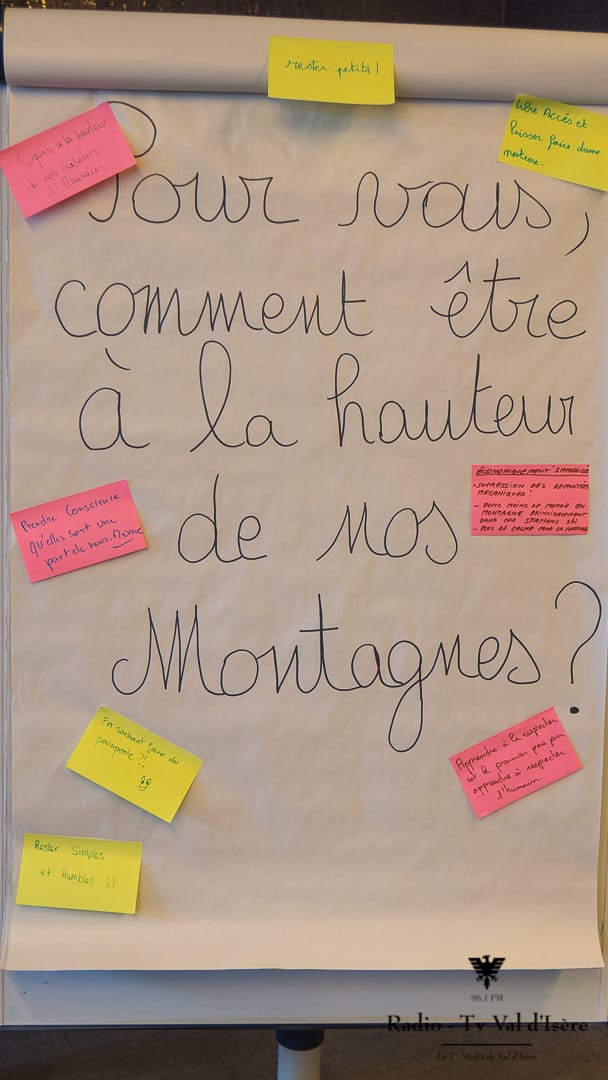 rester petits !
libre Accés et
laisser faire dame
nature.
à la hauteur
de nos valeurs
d'Humains
Pour vous,
comment être
à la hauteur
de nos
Montagnes ?
ÉCONOMIQUEMENT
-SUPRESSION DES REMONTÉES
MECANIQUES !
- DONC MOINS DE MONDE EN
MONTAGNE PRINCIPALEMENT
DANS DES STATIONS SKI
- PLUS DE CALME POUR LA NATURE
Prendre Conscience
Qu'elles sont une
part de nous. Même
En sachant faire du
parapente ?!
Apprendre à la respecter
est le premier pas pour
apprendre à respecter
l'humain.
Rester Simples
et Humbles ;)
96.1 FM
Radio - Tv Val d'Isère
Le 1er Média de Val d'Isère